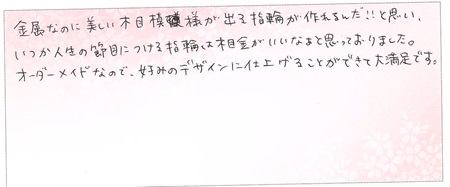 金属なのに美しい木目模様が出る指輪が作れるんだ!!と思い、
いつか人生の節目につける指輪は木目金がいいなぁと思っておりました。
オーダーメイドなので、好みのデザインに仕上げることができて大満足です。